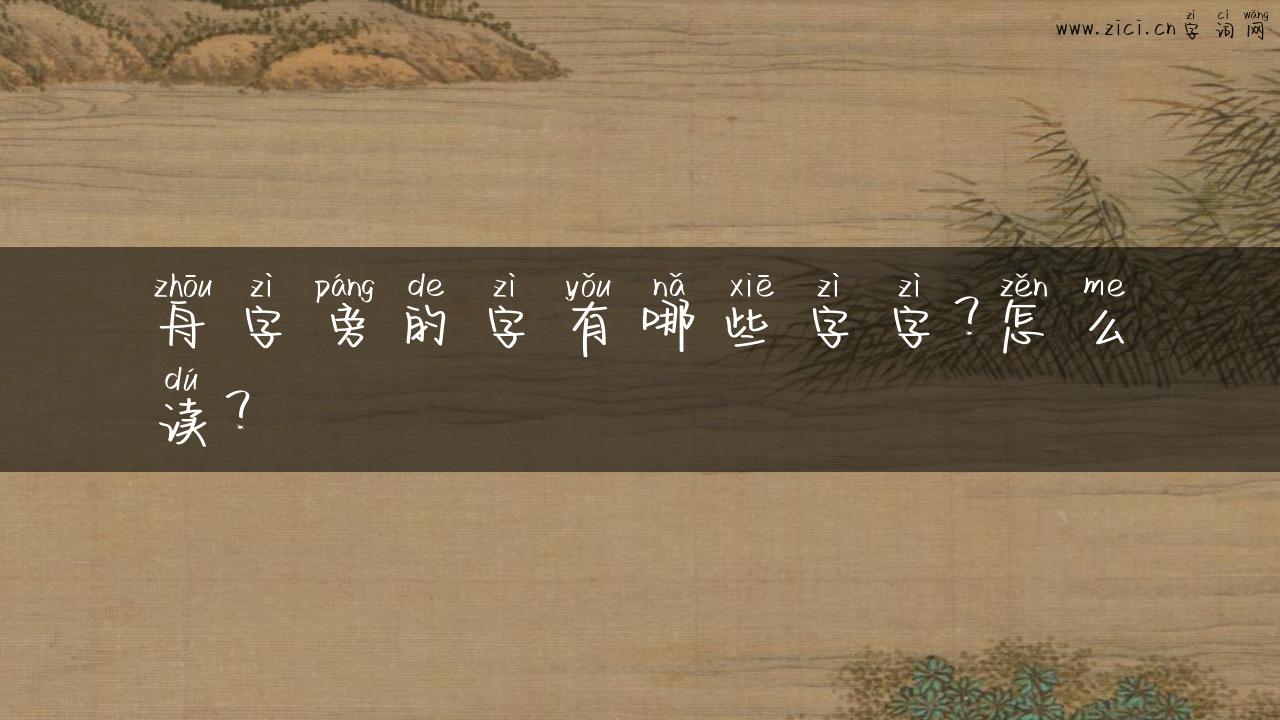 zì cí wǎng
www.zici.cn字词网
zhōu zì páng de zì yǒu nǎ xiē zì zì zěn me
舟字旁的字有哪些字字?怎么
dú
读?